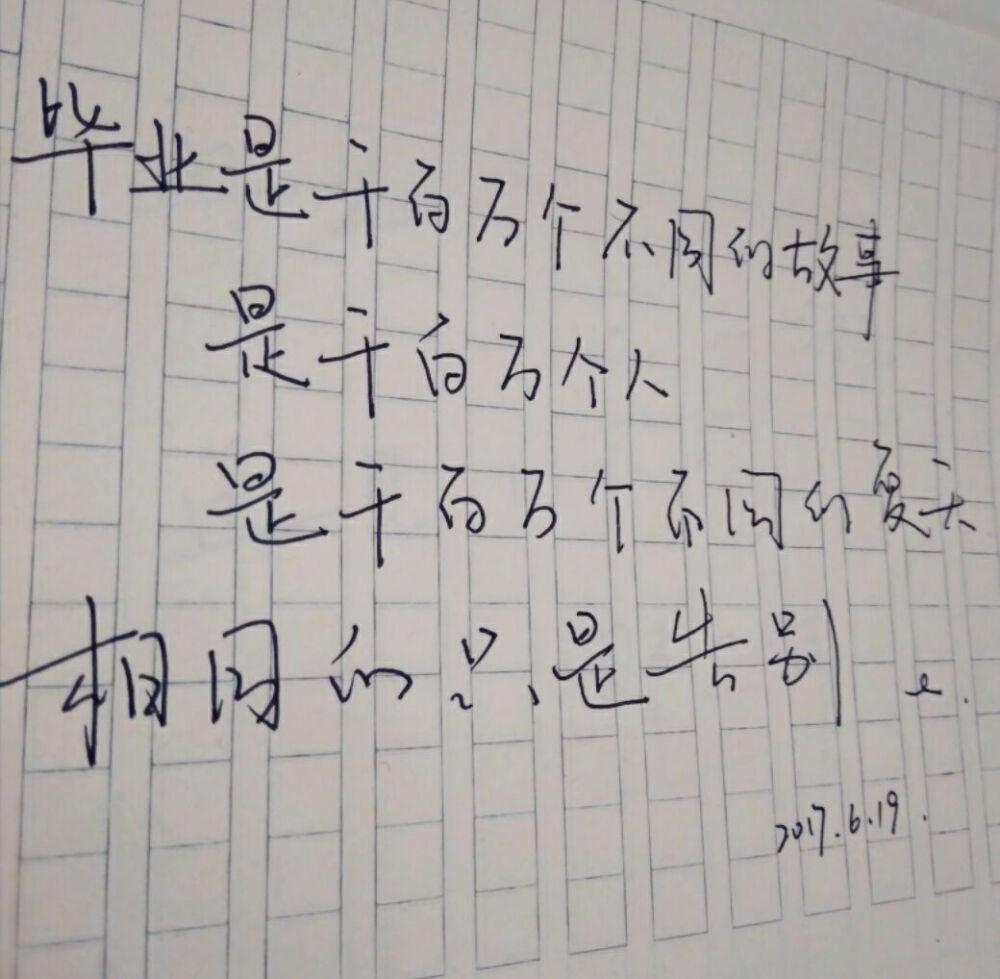 毕业是千百万个不同的故事
是千百万个人
是千百万个不同的夏天
相同的只是告别
2017.6.19.